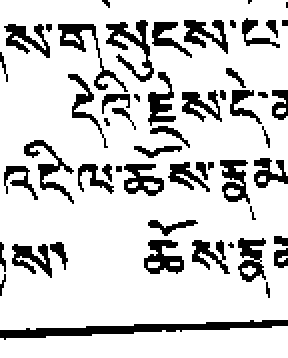 ས་གསུངས་པ་
དེའི་རྗེས་དེ་
འདི་ལ་ཆོས་རྣམ
ས། ཆོས་རྣ